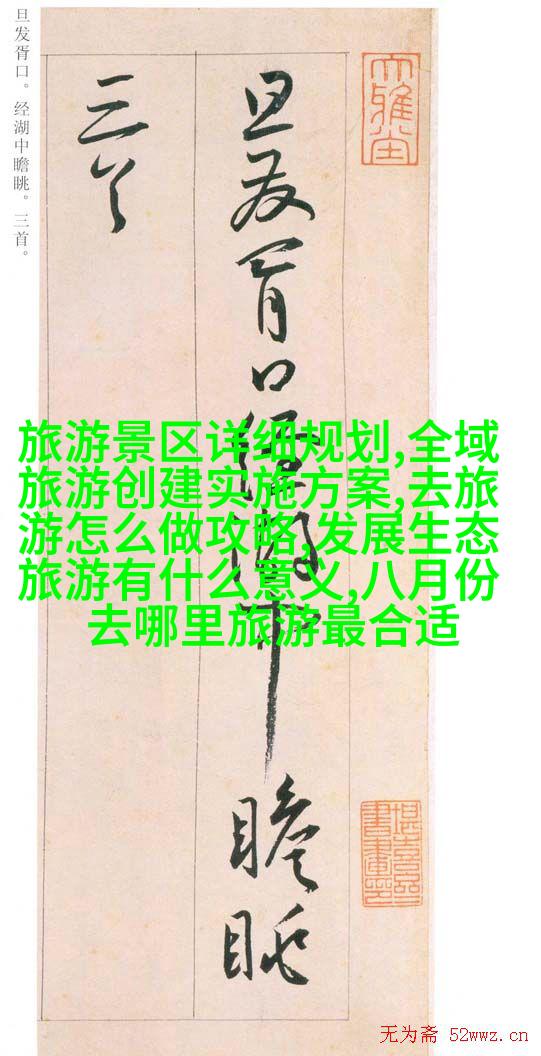 旦发胥口。经湖中瞻眺。三首。
旦发胥口经湖中瞻眺
三首
大雅堂
旅游景区详细规划,全域
旅游创建实施方案,去旅
游怎么做攻略,发展生态
旅游有什么意义,八月份
去哪里旅游最合适
无为斋 52wwz.cn